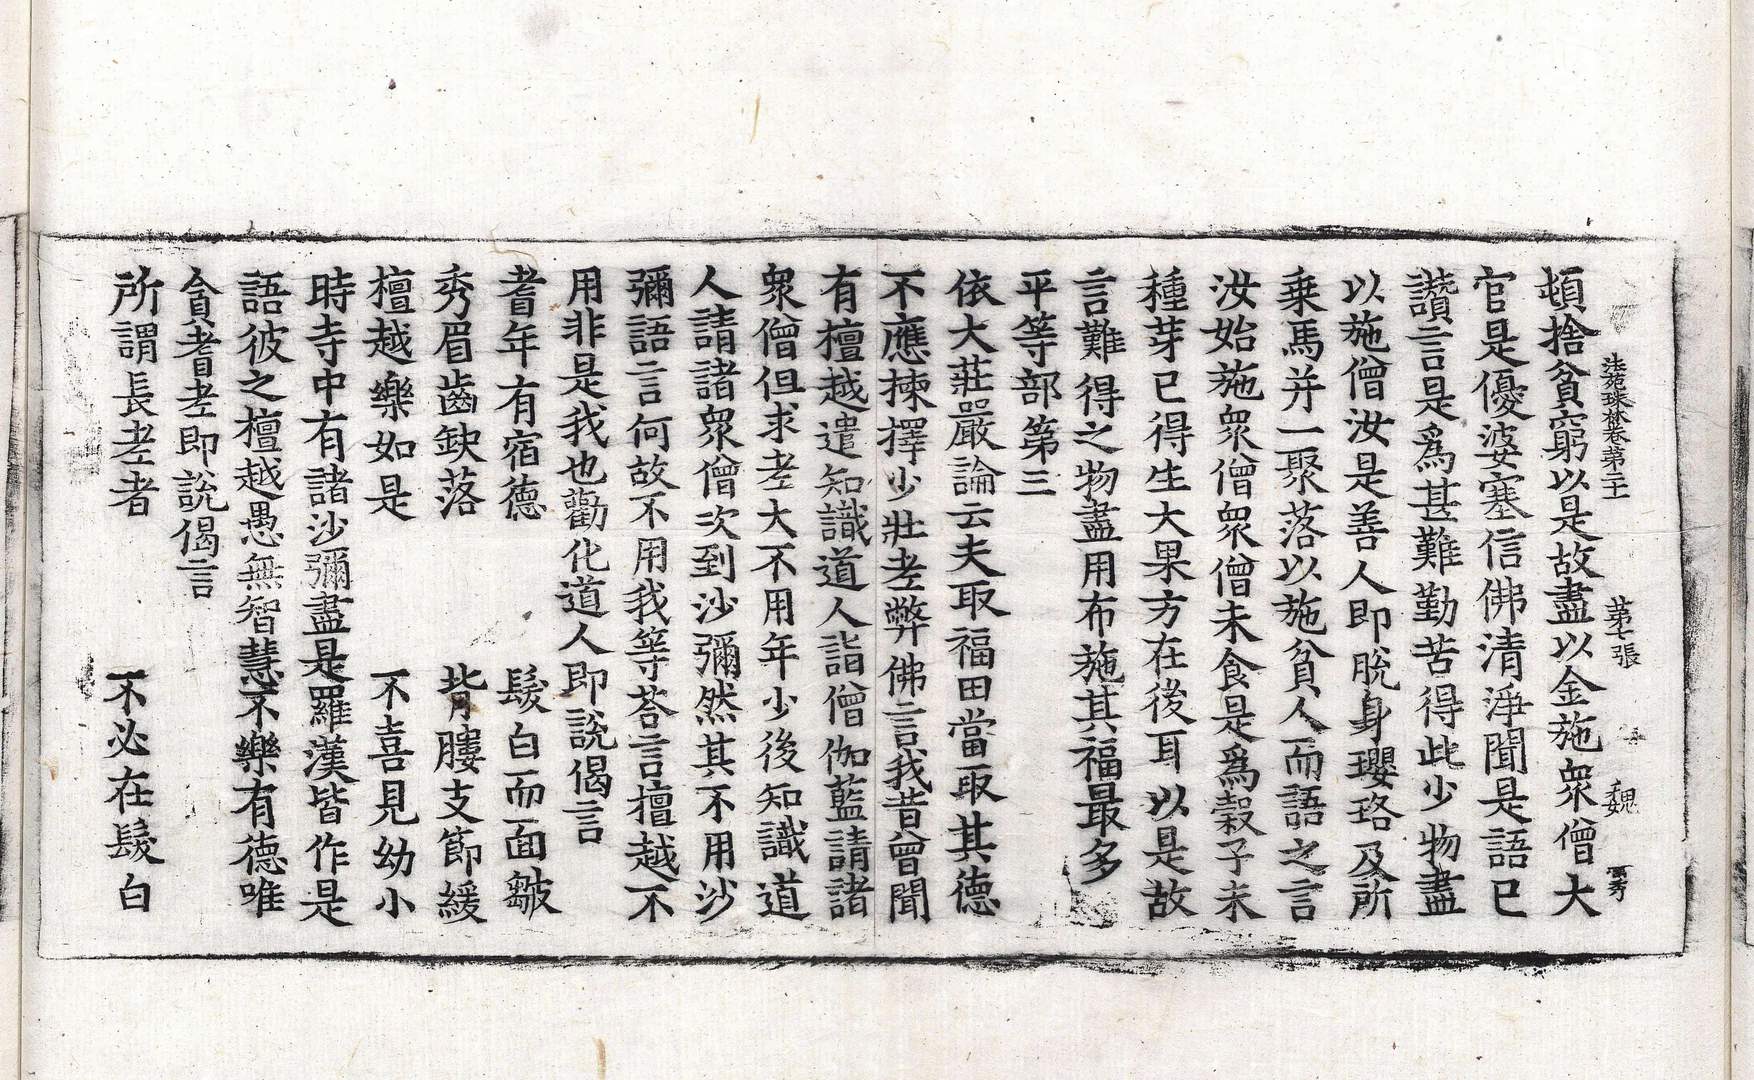 法苑珠林卷第二十一 第七張 魏
頓捨貧窮以是故盡以金施衆僧大
官是優婆塞信佛清淨聞是語已
讃言是爲甚難勤苦得此少物盡
以施僧汝是善人即脫身瓔珞及所
乗馬并一聚落以施貧人而語之言
汝始施衆僧衆僧未食是爲穀子未
種芽已得生大果方在後耳以是故
言難得之物盡用布施其福最多
平等部第三
依大莊嚴論云夫取福田當取其德
不應揀擇少壯老弊佛言我昔曾聞
有檀越遣知識道人詣僧伽藍請諸
衆僧但求老大不用年少後知識道
人請諸衆僧次到沙彌然其不用沙
彌語言何故不用我等荅言檀越不
用非是我也勸化道人即說偈言
耆年有宿德 髮白而面皺
秀眉齒缺落 背膢支節緩
檀越樂如是 不喜見幼小
時寺中有諸沙彌盡是羅漢皆作是
語彼之檀越愚無智慧不樂有德唯
貪耆老即說偈言
所謂長老者 不必在髮白